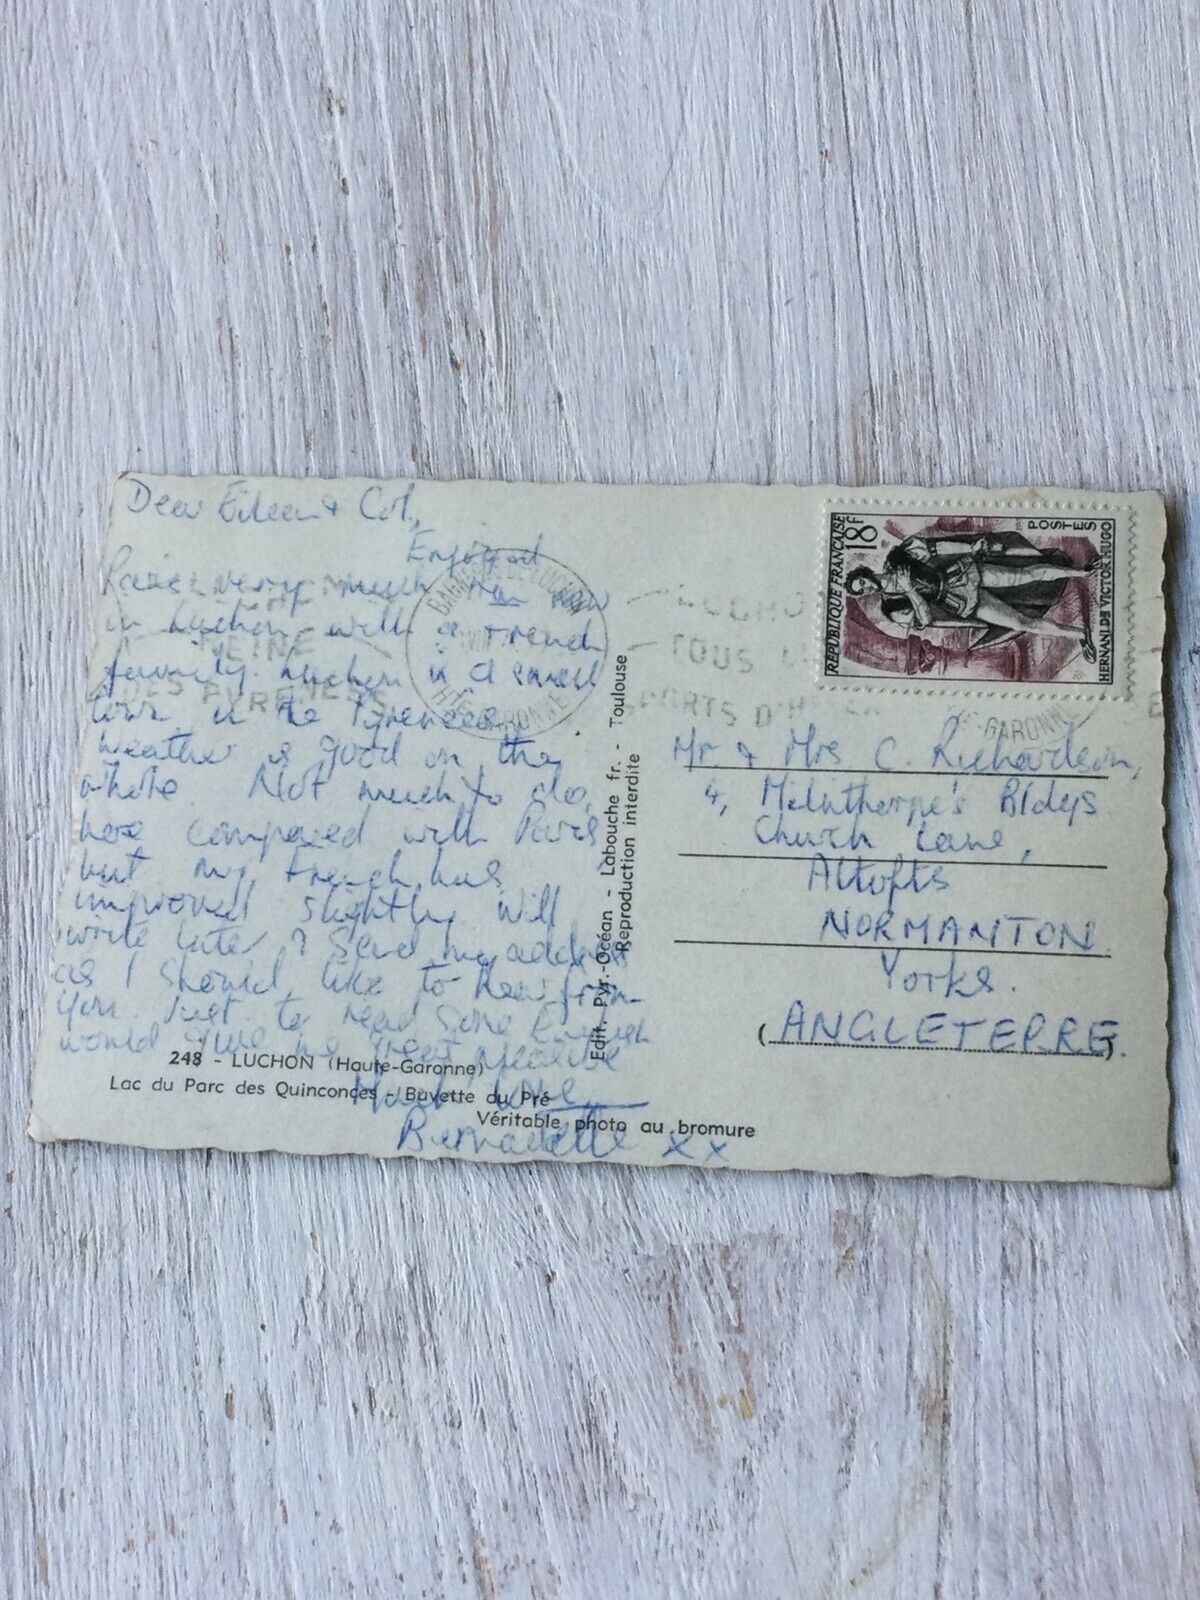 Dear Eileen & Col,
Enjoyed
Paris very much. Am now
in Luchon with a French
family. Luchon is a small
town in the Pyrenees
Weather is good on the
whole. Not much to do,
here compared with Paris
but my French has
improved slightly. Will
write later. I send my address
as I should like to hear from
you. Just to read some English
would give me great pleasure
Much love
Bernadette xx
248 - LUCHON (Haute-Garonne)
Lac du Parc des Quinconces - Buvette du Pré
Véritable photo au bromure
Edit. Pyr.-Océan - Labouche fr. - Toulouse
Reproduction interdite
REINE
DES PYRENEES
BAGNERES DE LUCHON
HTE-GARONNE
LUCHON
TOUS
SPORTS D'HIVER
HTE-GARONNE
REPUBLIQUE FRANÇAISE
18F
POSTES
HERNANI DE VICTOR HUGO
Mr. & Mrs C. Richardson,
4, Milnthorpe's Bldgs
Church Lane,
Altofts
NORMANTON
Yorks.
(ANGLETERRE.)